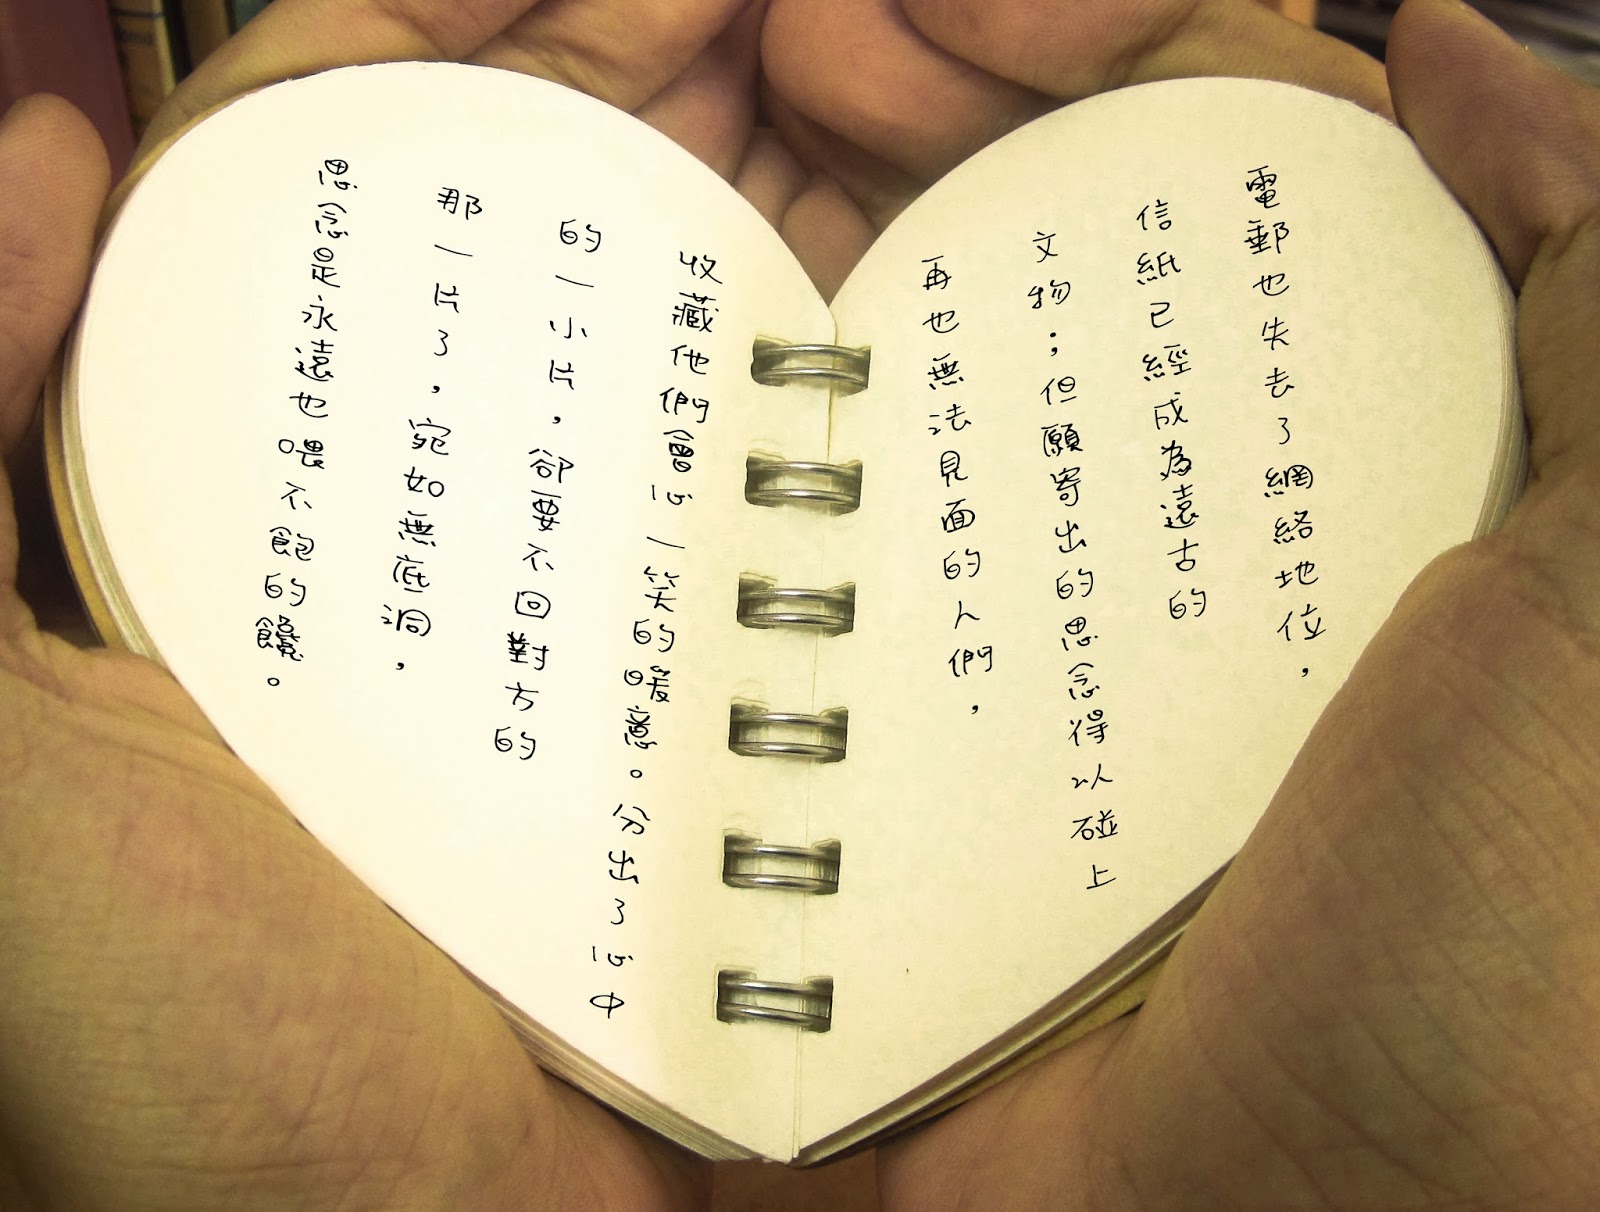 電郵也失去了網絡地位，
信紙已經成為遠古的
文物；但願寄出的思念得以碰上
再也無法見面的人們，
收藏他們會心一笑的暖意。分出了心中
的一小片，卻要不回對方的
那一片了，宛如無底洞，
思念是永遠也喂不飽的饞。